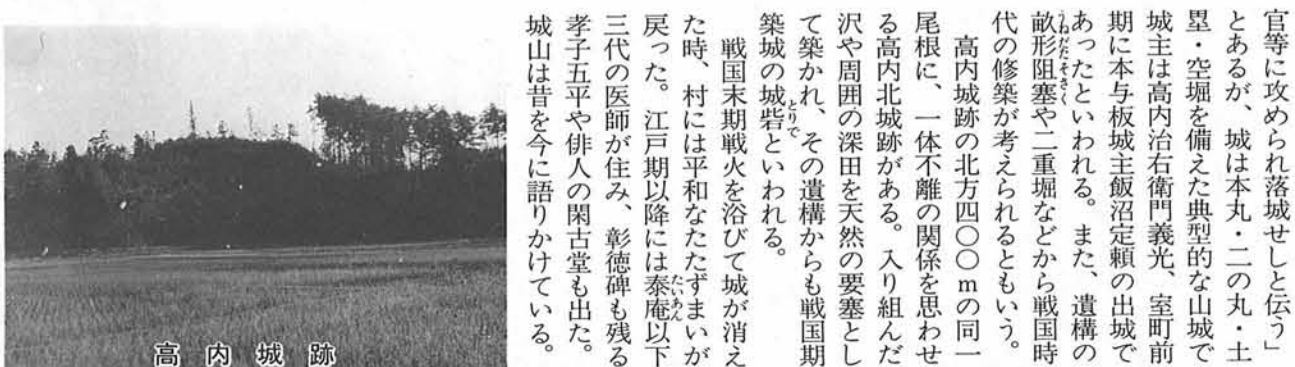 官等に攻められ落城せしと伝う」
とあるが、城は本丸・二の丸・土
塁・空堀を備えた典型的な山城で
城主は高内治右衛門義光、室町前
期に本与板城主飯沼定頼の出城で
あったといわれる。また、遺構の
畝形阻塞や二重堀などから戦国時
代の修築が考えられるともいう。
高内城跡の北方四〇〇mの同一
尾根に、一体不離の関係を思わせ
る高内北城跡がある。入り組んだ
沢や周囲の深田を天然の要塞とし
て築かれ、その遺構からも戦国期
築城の城砦といわれる。
戦国末期戦火を浴びて城が消え
た時、村には平和なたたずまいが
戻った。江戸期以降には泰庵以下
三代の医師が住み、彰徳碑も残る
孝子五平や俳人の閑古堂も出た。
城山は昔を今に語りかけている。
高内城跡